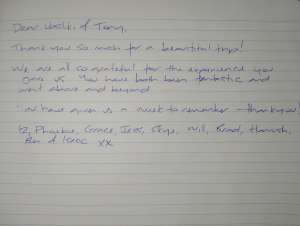 Dear Wache & Tony,
Thank you so much for a beautiful trip!
We are all so grateful for the experience you
gave us. You have both been fantastic and
went above and beyond
You have given us a week to remember - thank you,
Phoebe, Grace, Skye, Will, Hamish,
Ben & Isaac xx